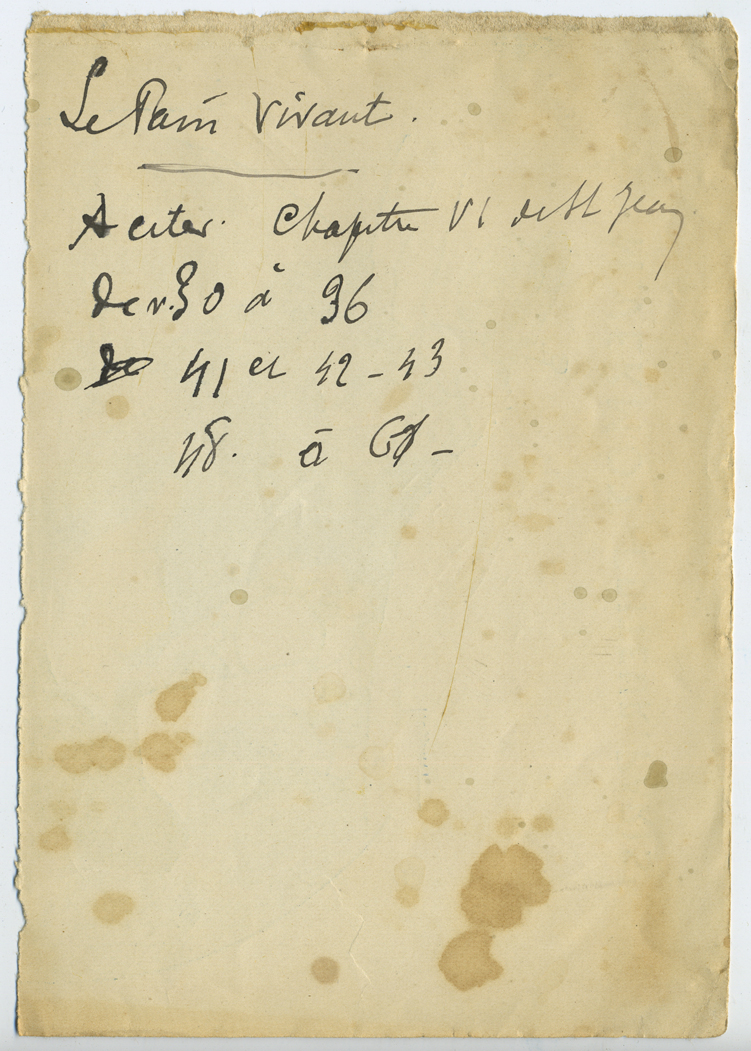 Le Pain Vivant.
A citer. Chapitre VI de St Jean
De v. 30 à 36
41 et 42 - 43
48. à